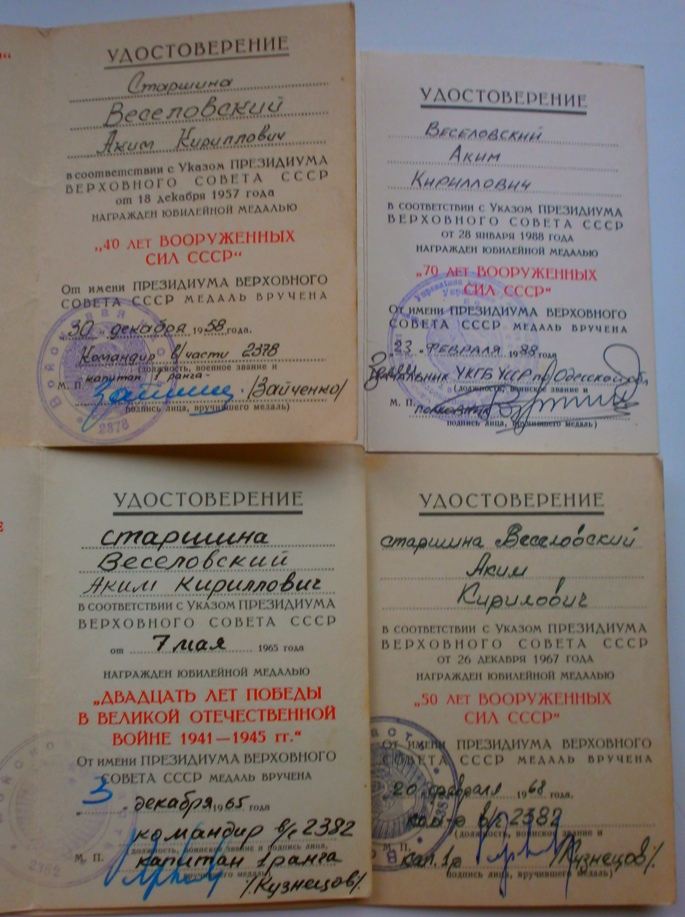 УДОСТОВЕРЕНИЕ
Старшина
Веселовский
Аким Кириллович
в соответствии с Указом ПРЕЗИДИУМА
ВЕРХОВНОГО СОВЕТА СССР
от 18 декабря 1957 года
НАГРАЖДЕН ЮБИЛЕЙНОЙ МЕДАЛЬЮ
„40 ЛЕТ ВООРУЖЕННЫХ
СИЛ СССР“
От имени ПРЕЗИДИУМА ВЕРХОВНОГО
СОВЕТА СССР МЕДАЛЬ ВРУЧЕНА
30 декабря 1958 года.
Командир в/части 2378
(должность, воинское звание и
капитан 1 ранга
М. П. /Зайченко/
подпись лица, вручившего медаль)
2378
УДОСТОВЕРЕНИЕ
Веселовский
Аким
Кириллович
В СООТВЕТСТВИИ С УКАЗОМ ПРЕЗИДИУМА
ВЕРХОВНОГО СОВЕТА СССР
ОТ 28 ЯНВАРЯ 1988 ГОДА
НАГРАЖДЕН ЮБИЛЕЙНОЙ МЕДАЛЬЮ
„70 ЛЕТ ВООРУЖЕННЫХ
СИЛ СССР“
От имени ПРЕЗИДИУМА ВЕРХОВНОГО
СОВЕТА СССР МЕДАЛЬ ВРУЧЕНА
23 февраля 1988 года
начальник УКГБ УССР по Одесской обл.
(должность, воинское звание и
М. П. полковник
подпись лица, вручившего медаль)
УДОСТОВЕРЕНИЕ
старшина
Веселовский
Аким Кириллович
В СООТВЕТСТВИИ С УКАЗОМ ПРЕЗИДИУМА
ВЕРХОВНОГО СОВЕТА СССР
от 7 мая 1965 года
НАГРАЖДЕН ЮБИЛЕЙНОЙ МЕДАЛЬЮ
„ДВАДЦАТЬ ЛЕТ ПОБЕДЫ
В ВЕЛИКОЙ ОТЕЧЕСТВЕННОЙ
ВОЙНЕ 1941—1945 гг.“
От имени ПРЕЗИДИУМА ВЕРХОВНОГО
СОВЕТА СССР МЕДАЛЬ ВРУЧЕНА
3 декабря 1965 года
командир в/ч 2382
(должность, воинское звание и подпись лица,
М. П. капитан 1 ранга
вручившего медаль)
/Кузнецов/
2382
УДОСТОВЕРЕНИЕ
старшина Веселовский
Аким
Кирилович
В СООТВЕТСТВИИ С УКАЗОМ ПРЕЗИДИУМА
ВЕРХОВНОГО СОВЕТА СССР
ОТ 26 ДЕКАБРЯ 1967 ГОДА
НАГРАЖДЕН ЮБИЛЕЙНОЙ МЕДАЛЬЮ
„50 ЛЕТ ВООРУЖЕННЫХ
СИЛ СССР“
От имени ПРЕЗИДИУМА ВЕРХОВНОГО
СОВЕТА СССР МЕДАЛЬ ВРУЧЕНА
20 февраля 1968 года.
ком-р в/ч 2382
(должность, воинское звание и
М. П. кап. 1 р Кузнецов/
подпись лица, вручившего медаль)